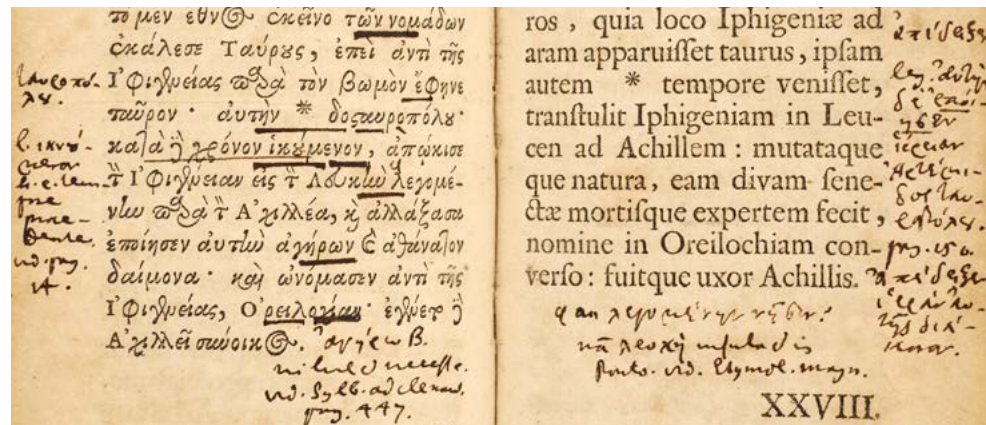 τὸ μὲν ἔθνος ἐκεῖνο τῶν νομάδων
ἐκάλεσε Ταύρους, ἐπεὶ ἀντὶ τῆς
Ἰφιγενείας παρὰ τὸν βωμὸν ἔφηνε
ταῦρον· αὐτὴν * δοςταυροπόλυ·
κατὰ ἢ χρόνον ἱκούμενον, ἀπώκισε
τ̄ Ἰφιγένειαν εἰς τ̄ Λουκὴν λεγομέ-
νην παρὰ τ̄ Ἀχιλλέα, κ̀ ἀλλάξασα
ἐποίησεν αὐτὴν ἀγήρων Ͼ ἀθάνατον
δαίμονα· καὶ ὠνόμασεν ἀντὶ τῆς
Ἰφιγενείας, Ὀρειλοχίαν· ἐγένετο
Ἀχιλλεῖ σύνοικος.
ἀγήρω B.
vid. Sylb. ad clem.
pag. 447.
ταυροπό-
vid. pag.
14.
ros, quia loco Iphigeniæ ad
aram apparuiſſet taurus, ipſam
autem * tempore veniſſet,
tranſtulit Iphigeniam in Leu-
cen ad Achillem : mutataque
que natura, eam divam ſene-
ctæ mortiſque expertem fecit,
nomine in Oreilochiam con-
verſo : fuitque uxor Achillis.
Ponto. vid. Etymol. magn.
XXVIII.
ἀπέδειξε
leg. αὐτὴν
δὲ ἐποί-
ησεν
ἱέρειαν
Ἀρτέμι-
δος ταυ-
ροπόλου.
pag. 150.
ἀπέδειξε